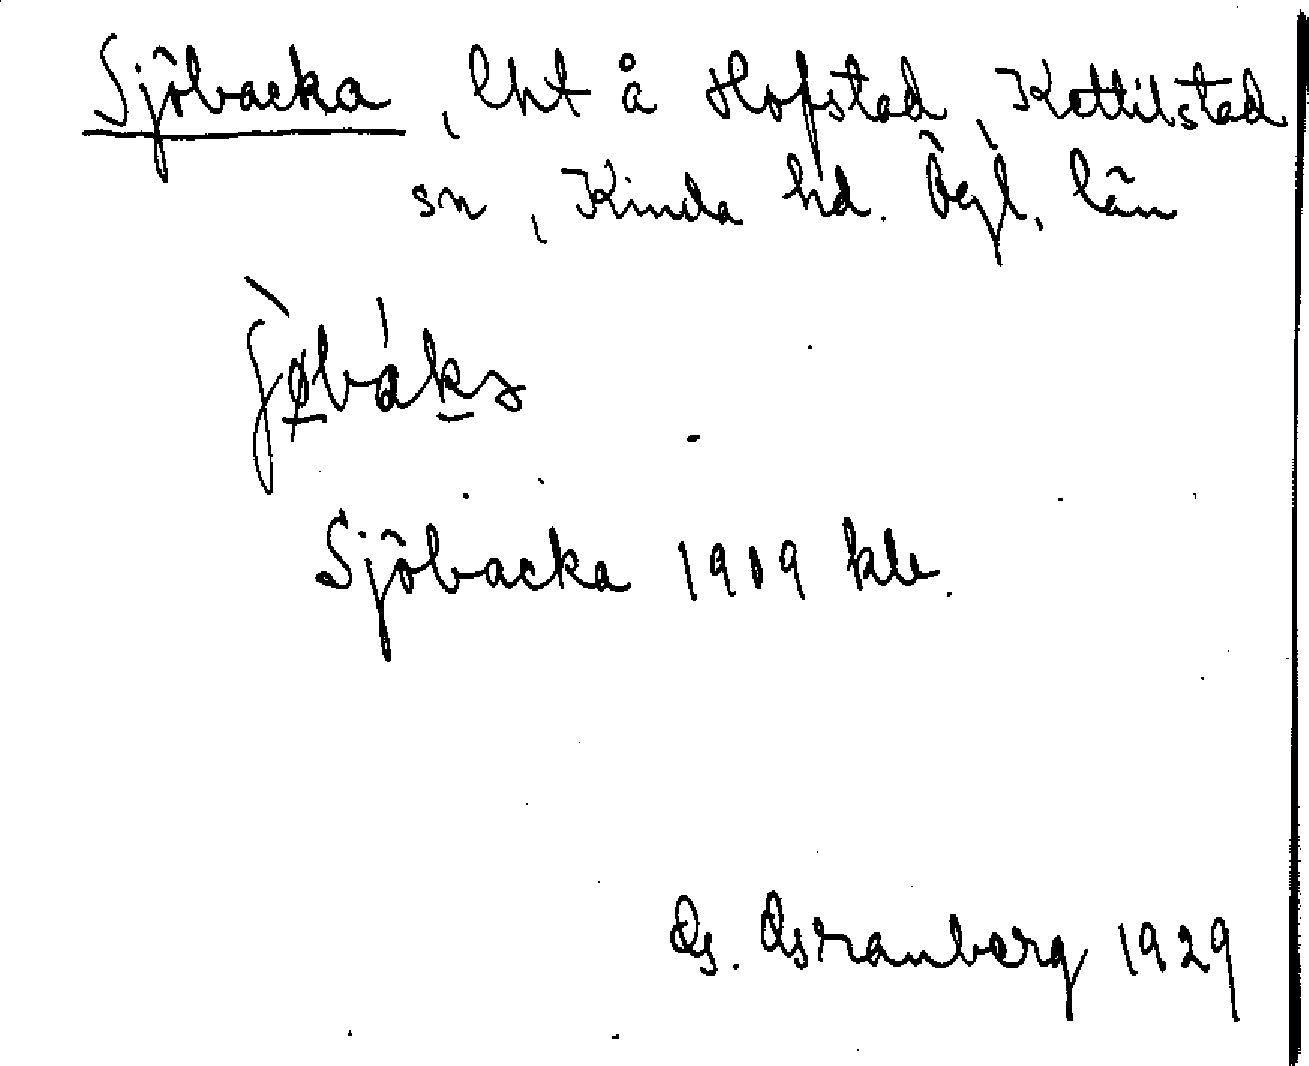 Sjöbacka, lht å Hofstad, Kettilstad
sn, Kinda hd. Ögl. län
Sjöbacka 1919 kle.
G. Granberg 1929